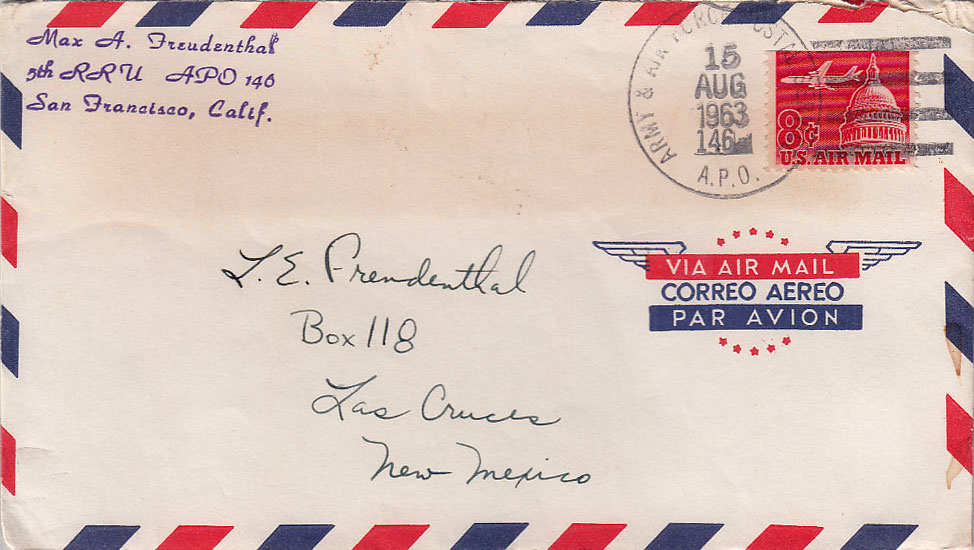 Max A. Freudenthal
5th RRU APO 146
San Francisco, Calif.
ARMY & AIR FORCE POSTAL
15
AUG
1963
146
A.P.O.
8¢
U.S. AIR MAIL
L. E. Freudenthal
Box 118
Las Cruces
New Mexico
VIA AIR MAIL
CORREO AEREO
PAR AVION